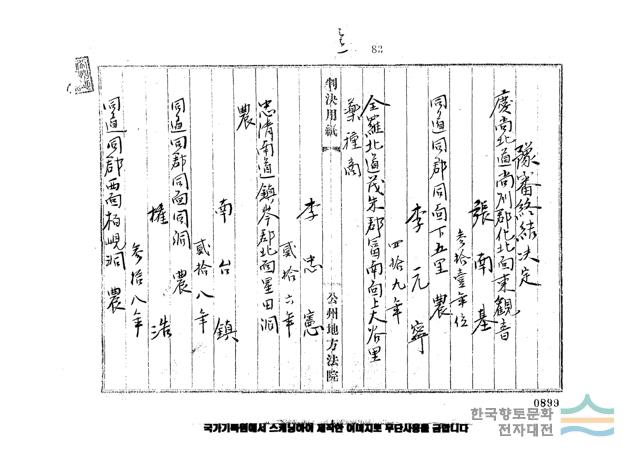 82
豫審終結決定
慶尚北道尚州郡化北面東觀音
張南基
參拾壹年位
同道同郡同面下五里 農
李元寧
四拾九年
全羅北道茂朱郡富南面上大谷里
藥種商
判決用紙
公州地方法院
李忠憲
貳拾六年
忠清南道鎮岑郡北面星田洞
農
南台鎮
貳拾八年
同道同郡同面同洞 農
權浩
參拾八年
同道同郡西面栢峴洞 農
0899
한국향토문화
전자대전
국가기록원에서 스캐닝하여 제작한 이미지로 무단사용을 금합니다